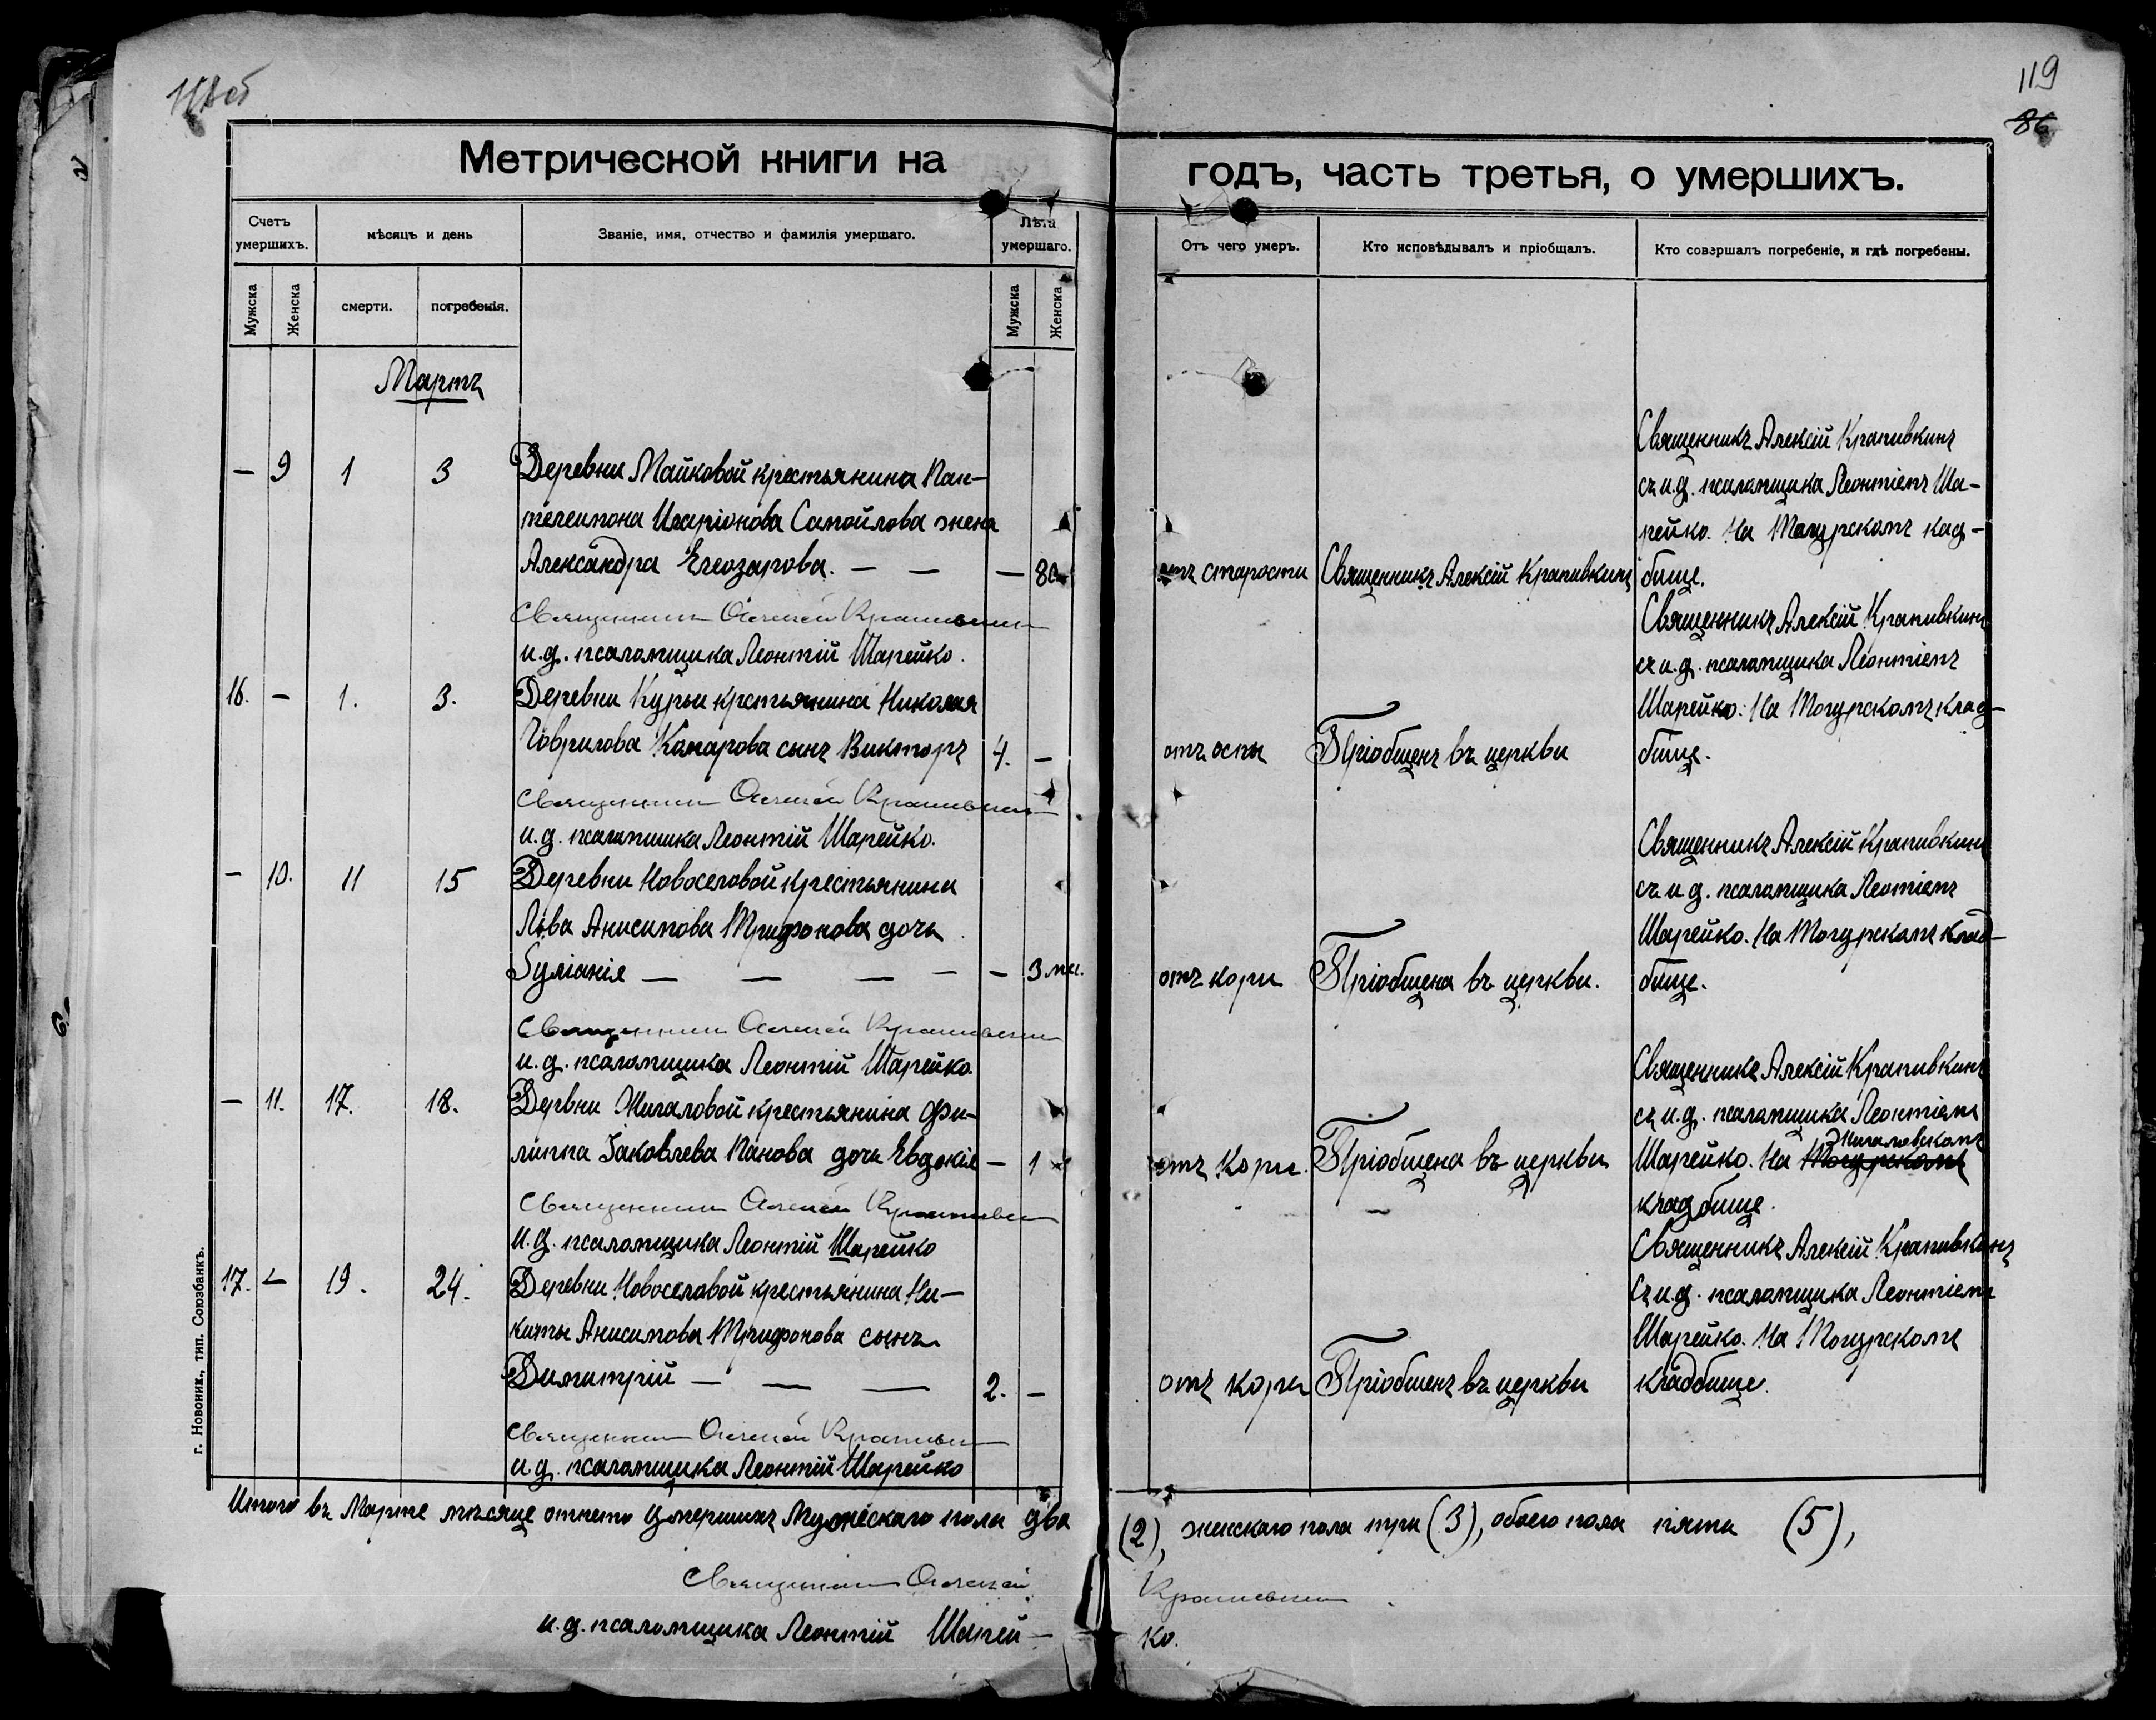 118об
119
86
Метрической книги на годъ, часть третья, о умершихъ.
Счетъ умершихъ.
мѣсяцъ и день
Званіе, имя, отчество и фамилія умершаго.
Лѣта умершаго.
Отъ чего умеръ.
Кто исповѣдывалъ и пріобщалъ.
Кто совершалъ погребеніе, и гдѣ погребены.
Мужска
Женска
смерти.
погребенія.
Мужска
Женска
Мартъ
— 9 1 3 Деревни Майковой крестьянина Пан-
телеимона Иларіонова Самойлова жена
Александра Елеозарова. — — — 80
отъ старости
Священникъ Алексій Крапивкинъ
Священникъ Алексій Крапивкинъ
съ и.д. псаломщика Леонтіемъ Ша-
рейко. На Тогурскомъ кад-
бище.
Священникъ Алексей Крапивкин
и.д. псаломщика Леонтій Шарейко.
16. — 1. 3. Деревни Курьи крстьянина Николая
Гаврилова Комарова сынъ Викторъ 4. —
отъ оспы
Пріобщенъ въ церкви
Священникъ Алексій Крапивкинъ
съ и.д. псаломщика Леонтіемъ
Шарейко. На Тогурскомъ клад-
бище.
Священникъ Алексей Крапивкин
и.д. псаломщика Леонтій Шарейко.
— 10. 11 15 Деревни Новоселовой крестьянина
Льва Анисимова Трифонова дочь
Іуліанія — — — — — 3 мц.
отъ кори
Пріобщена въ церкви.
Священникъ Алексій Крапивкинъ
съ и д. псаломщика Леонтіемъ
Шарейко. На Тогурскомъ клад-
бище.
Священникъ Алексей Крапивкин
и.д. псаломщика Леонтій Шарейко
— 11. 17. 18. Дервни Жигаловой крестьянина Фи-
липпа Іаковлева Панова дочь Евдокія — 1
отъ кори.
Пріобщена въ церкви
Священникъ Алексій Крапивкинъ
съ и.д. псаломщика Леонтіемъ
Жигаловскомъ
Шарейко. На Тогурскомъ
кладбище.
Священникъ Алексей Крапивкин
и.д. псаломщика Леонтій Шарейко
17. — 19. 24. Деревни Новоселовой крестьянина Ни-
киты Анисимова Трифонова сынъ
Димитрій — — — 2. —
отъ кори
Пріобщенъ въ церкви
Священникъ Алексій Крапивкинъ
съ и.д. псаломщика Леонтіемъ
Шарейко. На Тогурскомъ
кладбище.
Священникъ Алексей Крапивкин
и.д. псаломщика Леонтій Шарейко
г. Новоник., тип. Союзбанкъ.
Итого въ Марте мѣсяце отпето умершихъ Мужескаго пола два (2), женскаго пола три (3), обоего пола пять (5),
Священникъ Алексей Крапивкин
и.д. псаломщика Леонтій Шарей-
ко.